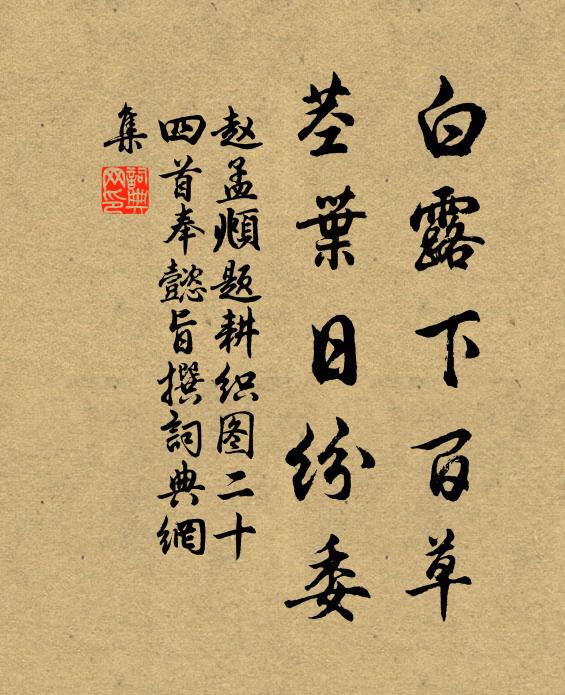 白露下百草
茎葉日纷委
赵孟頫题耕织图二十
四首奉懿旨撰詞典網
集
詞典网印